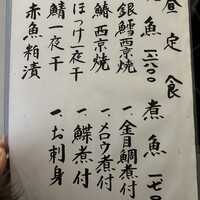 昼定食
魚 一三八〇
銀鱈西京焼
鰆西京焼
ほっけ一夜干
鯖一夜干
赤魚粕漬
煮魚 一七〇
一、金目鯛煮付
一、メロウ煮付
一、鰈煮付
一、お刺身